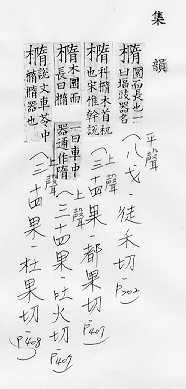 集韻
橢 圜而長也一曰
器名
平聲〈八戈〉徒禾切 P202
橢 科橢木首杌
也宋惟幹說
上聲〈三十四果〉都果切 P407
橢 木圜而
長曰橢
一曰車中
器通作隋
上聲〈三十四果〉吐火切 P407
橢 說文車笭中
橢橢器也
〈三十四果〉杜果切 P408